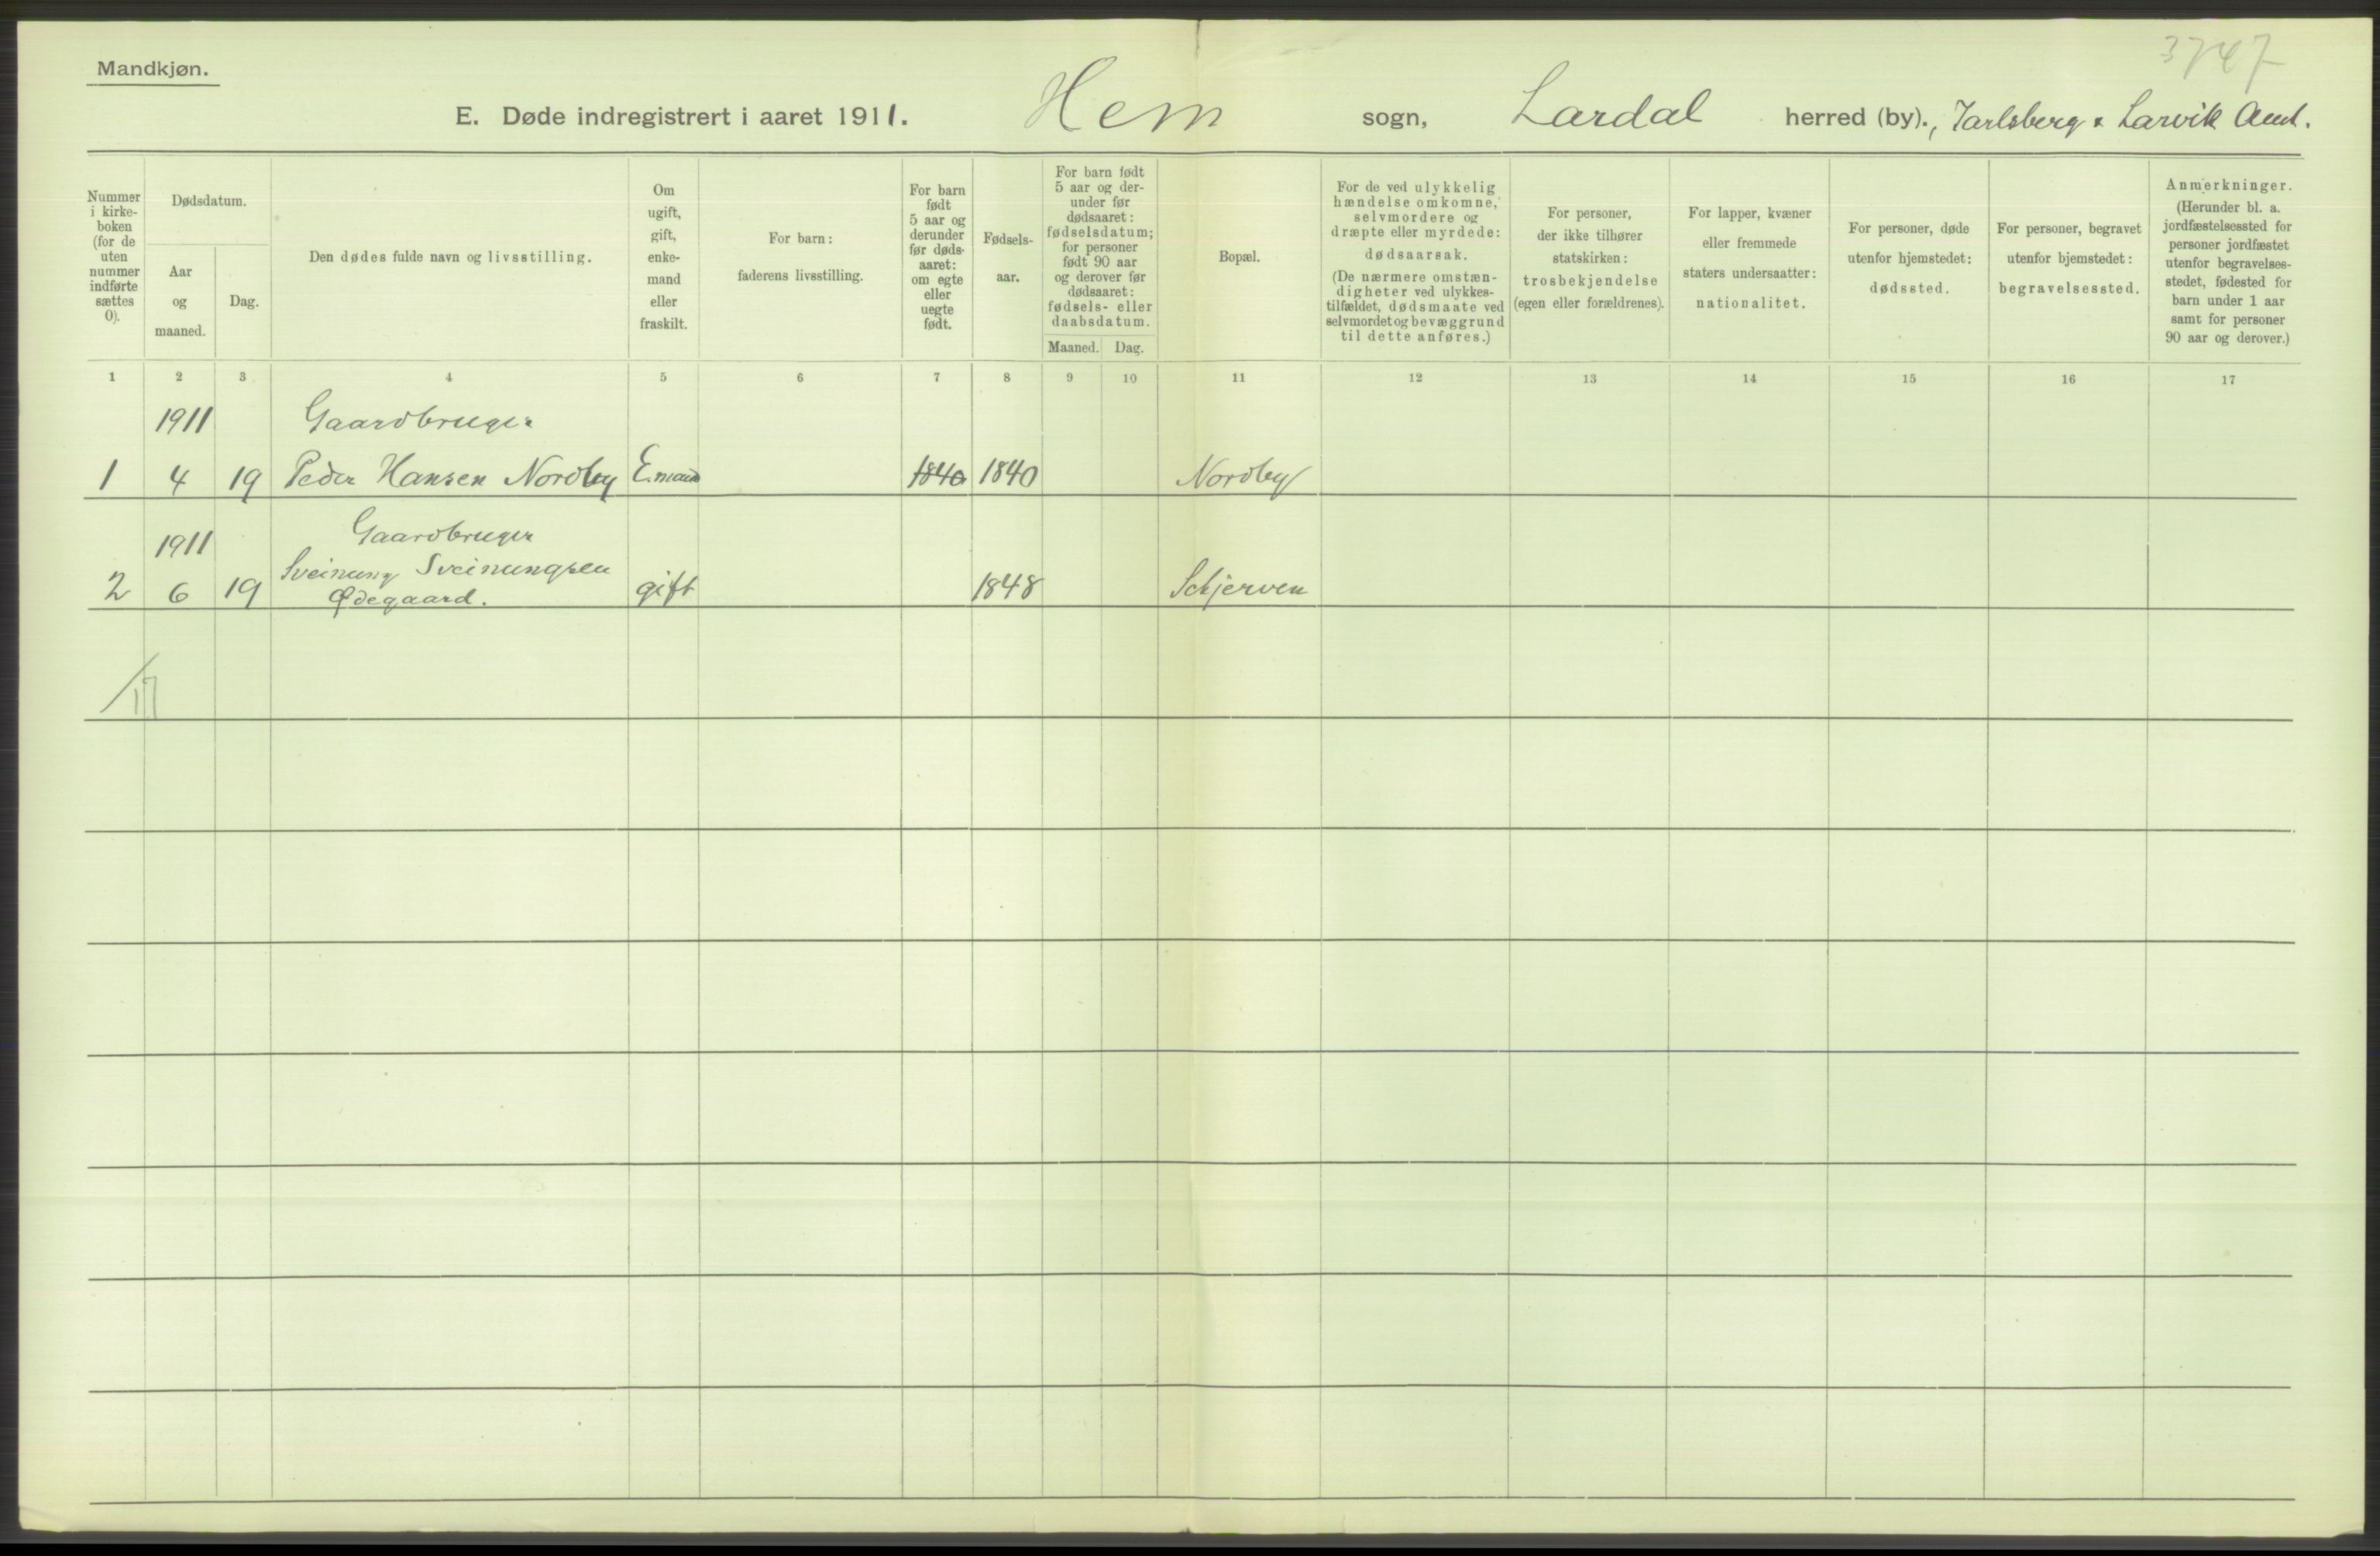 3747
Mandkjøn.
E. Døde indregistrert i aaret 1911. Hem sogn, Lardal herred (by)., Jarlsberg & Larvik Amt.
Nummer
i kirke-
boken
(for de
uten
nummer
indførte
sættes
0).
Dødsdatum.
Aar
og
maaned.
Dag.
Den dødes fulde navn og livsstilling.
Om
ugift,
gift,
enke-
mand
eller
fraskilt.
For barn:
faderens livsstilling.
For barn
født
5 aar og
derunder
før døds-
aaret:
om egte
eller
uegte
født.
Fødsels-
aar.
For barn født
5 aar og der-
under før
dødsaaret:
fødselsdatum;
for personer
født 90 aar
og derover før
dødsaaret:
fødsels- eller
daabsdatum.
Maaned. Dag.
Bopæl.
For de ved ulykkelig
hændelse omkomne,
selvmordere og
dræpte eller myrdede:
dødsaarsak.
(De nærmere omstæn-
digheter ved ulykkes-
tilfældet, dødsmaate ved
selvmordet og bevæggrund
til dette anføres.)
For personer,
der ikke tilhører
statskirken:
trosbekjendelse
(egen eller forældrenes).
For lapper, kvæner
eller fremmede
staters undersaatter:
nationalitet.
For personer, døde
utenfor hjemstedet:
dødssted.
For personer, begravet
utenfor hjemstedet:
begravelsessted.
Anmerkninger.
(Herunder bl. a.
jordfæstelsessted for
personer jordfæstet
utenfor begravelses-
stedet, fødested for
barn under 1 aar
samt for personer
90 aar og derover.)
1 2 3 4 5 6 7 8 9 10 11 12 13 14 15 16 17
1911 Gaardbruger
1 4 19 Peder Hansen Nordby E.mand 1840 1840 Nordby
1911 Gaardbruger
Sveinung Sveinungsen
2 6 19 Ødegaard. gift 1848 Schjerven
/17